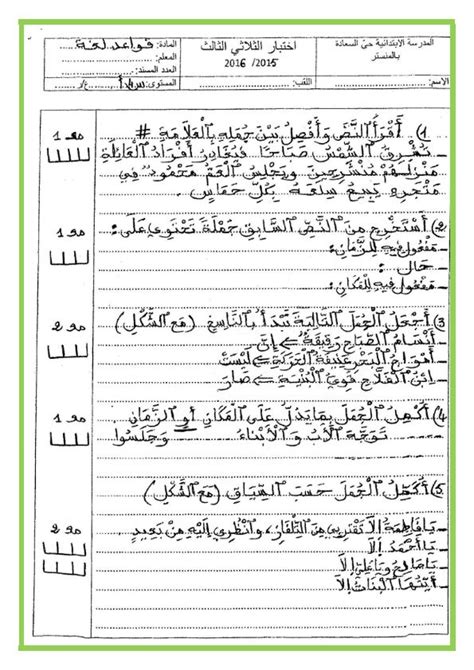 المدرسة الابتدائية حيّ السعادة
بالمنستير
اختبار الثلاثي الثالث
2016 /2015
المادة: قواعد لغة
المعلم:
العدد المسند:
المستوى: س
الاسم:
اللقب:
1) أَقْرَأُ النَّصَّ وَ أَفْصِلُ بَيْنَ جُمَلِهِ بِالْعَلَامَةِ #
مع 1
تُشْرِقُ الشَّمْسُ صَبَاحًا فَيُغَادِرُ أَفْرَادُ الْعَائِلَةِ
مَنْزِلَهُمْ مُنْشَرِحِينَ وَيَجْلِسُ الْعَمُّ مَحْمُودٌ فِي
مَتْجَرِهِ يَبِيعُ سِلَعَهُ بِكُلِّ حَمَاسٍ.
2) أَسْتَخْرِجُ مِنَ النَّصِّ السَّابِقِ جُمْلَةً تَحْتَوِي عَلَى:
مع 1
- مَفْعُول فِيهِ لِلزَّمَانِ:
- حَال :
- مَفْعُول فِيهِ لِلْمَكَانِ:
3) أَجْعَلُ الْجُمَلَ التَّالِيَةَ تَبْدَأُ بِالنَّاسِخِ (مَعَ الشَّكْلِ)
مع 2
- أَنْسَامُ الصَّبَاحِ رَقِيقَةٌ => إِنَّ
- أَمْوَاجُ الْبَحْرِ عَنِيفَةُ الْحَرَكَةِ => لَيْسَتْ
- اِبْنُ الْفَلَّاحِ قَوِيُّ الْبُنْيَةِ => صَارَ
4) أُكْمِلُ الْجُمَلَ بِمَا يَدُلُّ عَلَى الْمَكَانِ أَوِ الزَّمَانِ
مع 1
- تَوَجَّهَ الْأَبُ وَ الْأَبْنَاءُ وَجَلَسُوا
5) أُكْمِلُ الْجُمَلَ حَسَبَ السِّيَاقِ (مَعَ الشَّكْلِ)
مع 2
- يَا فَاطِمَةُ لَا تَقْتَرِبِي مِنَ التِّلْفَازِ، وَانْظُرِي إِلَيْهِ مِنْ بَعِيدٍ
- يَا أَحْمَدُ لَا
- يَا صَالِحُ وَيَا عَلِيُّ لَا
- أَيَّتُهَا الْبَنَاتُ لَا